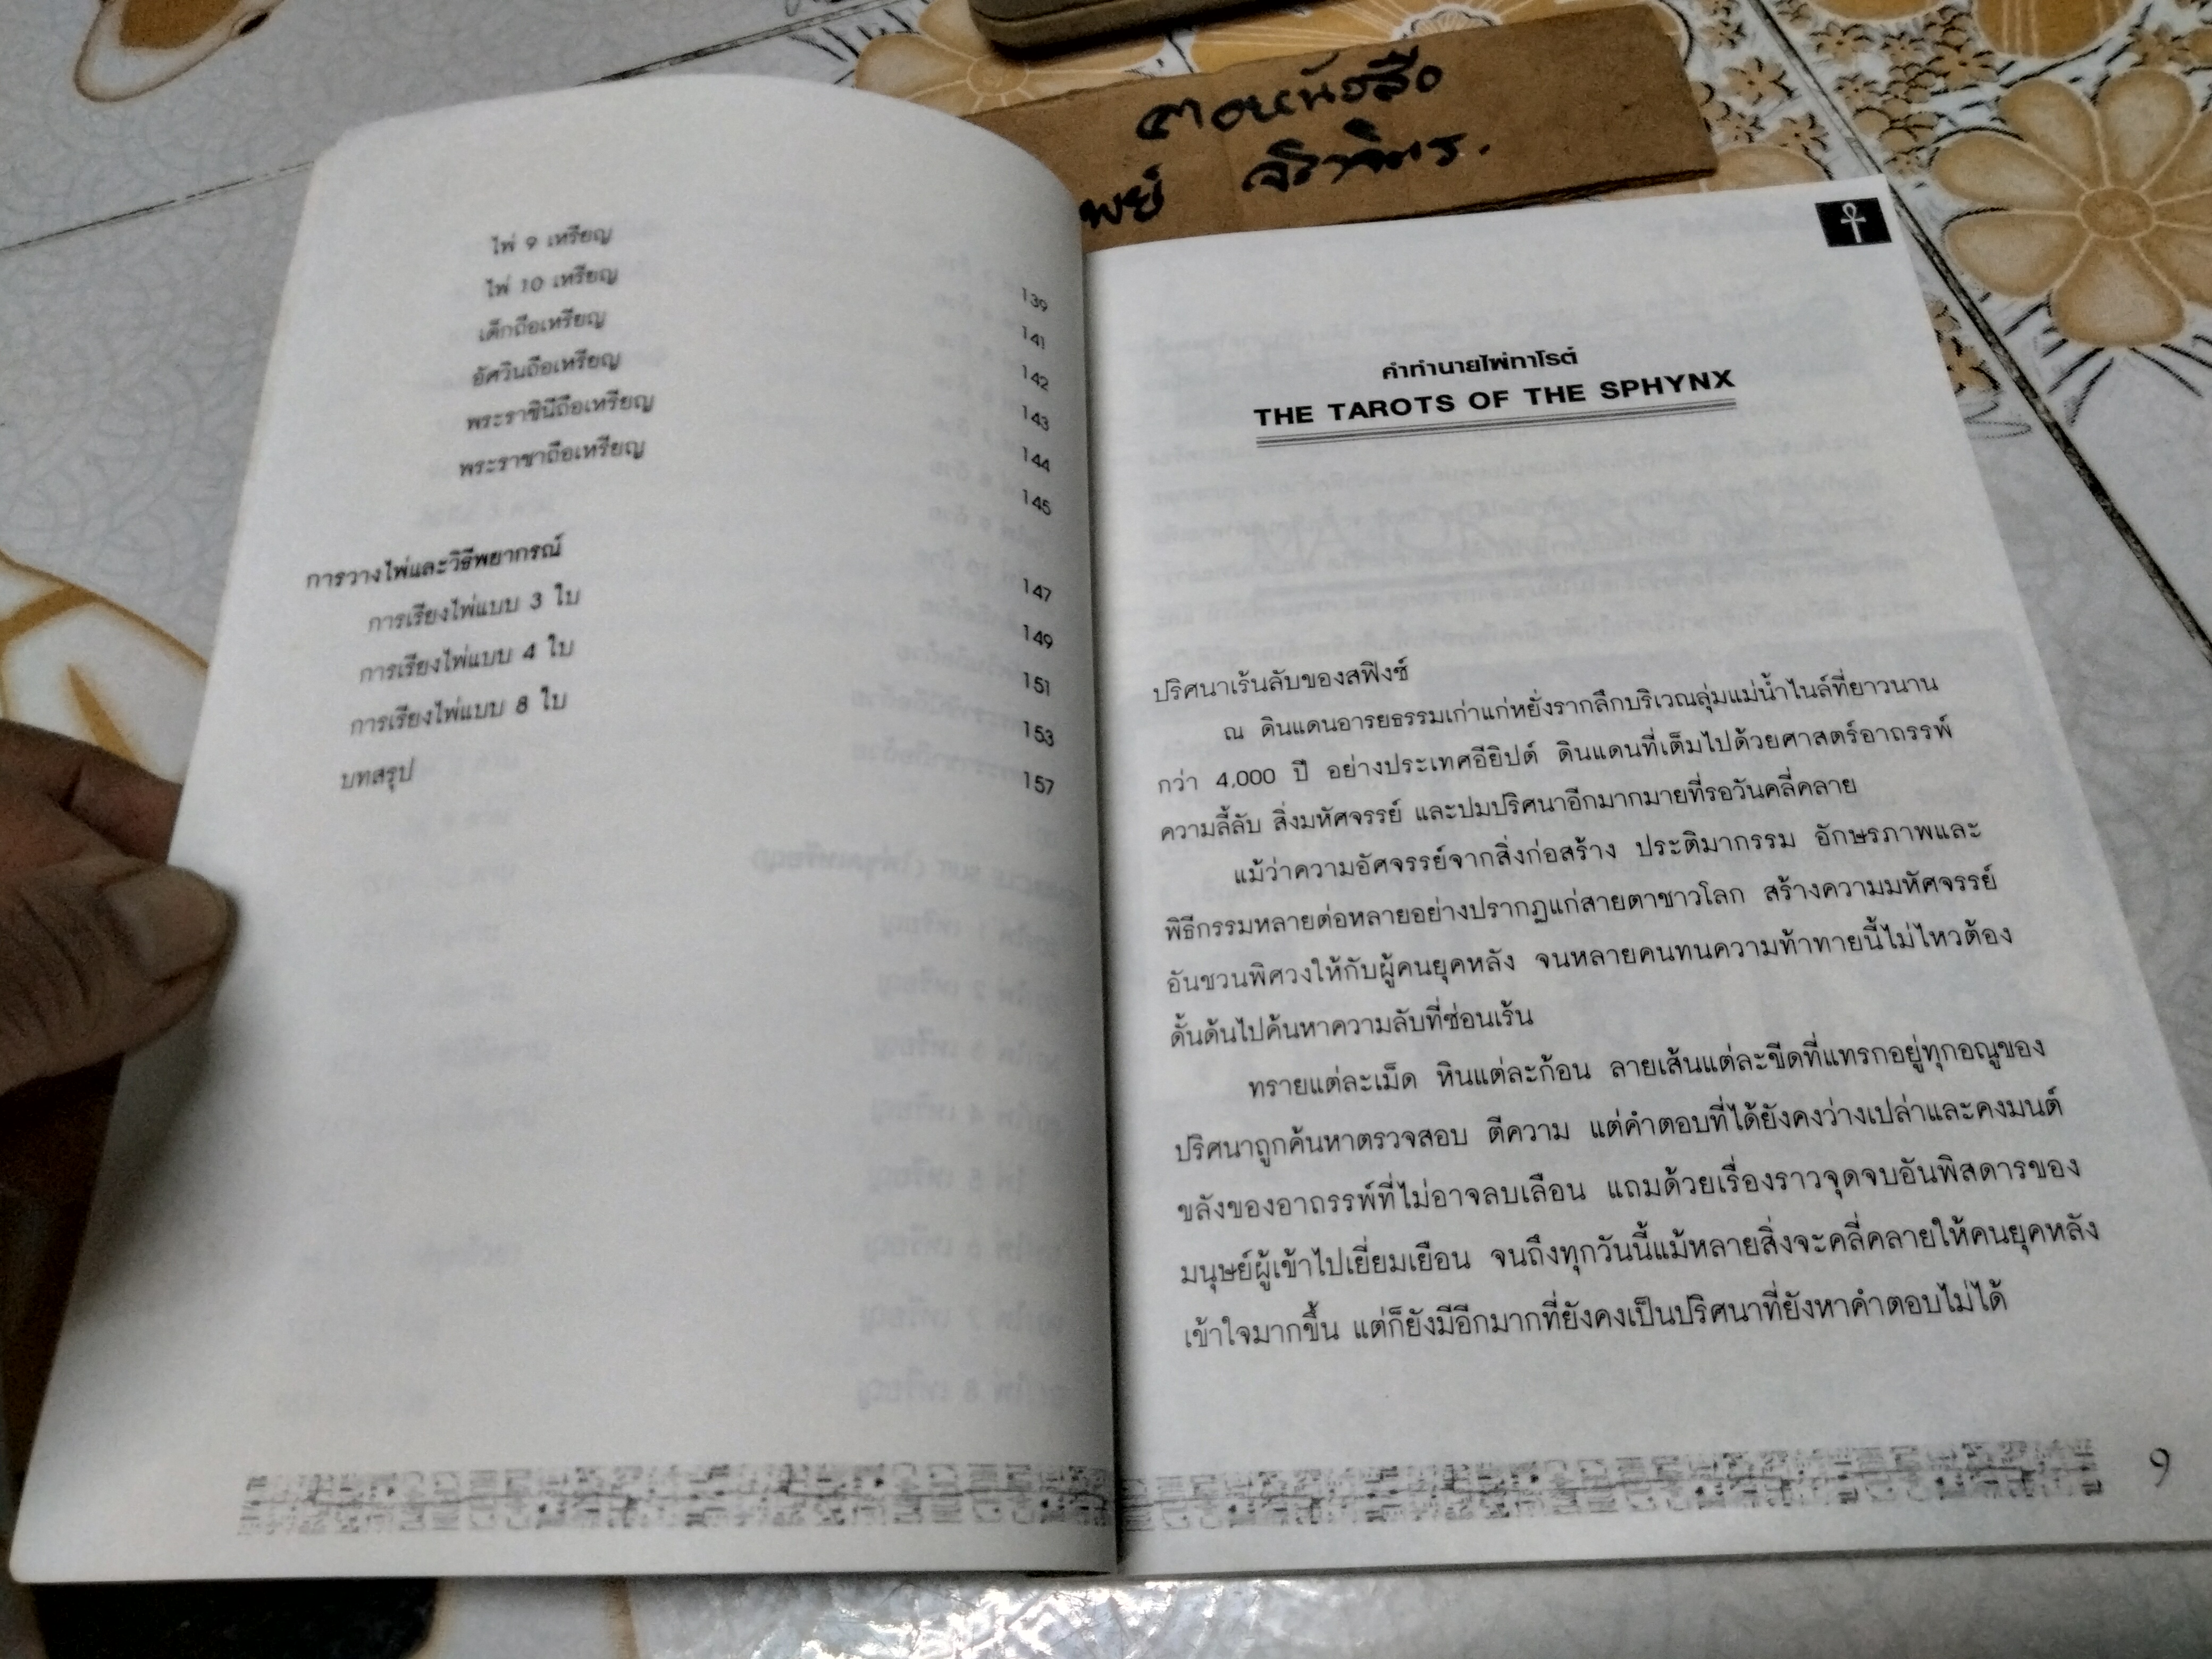 ตอหนังสือ
พย์
ไพ่ 9 เหรียญ 139
ไพ่ 10 เหรียญ 141
เด็กถือเหรียญ 142
อัศวินถือเหรียญ 143
พระราชินีถือเหรียญ 144
พระราชาถือเหรียญ 145
การวางไพ่และวิธีพยากรณ์ 147
การเรียงไพ่แบบ 3 ใบ 149
การเรียงไพ่แบบ 4 ใบ 151
การเรียงไพ่แบบ 8 ใบ 153
บทสรุป 157
คำทำนายไพ่ทาโรต์
THE TAROTS OF THE SPHYNX
ปริศนาเร้นลับของสฟิงซ์
ณ ดินแดนอารยธรรมเก่าแก่หยั่งรากลึกบริเวณลุ่มแม่น้ำไนล์ที่ยาวนาน
กว่า 4,000 ปี อย่างประเทศอียิปต์ ดินแดนที่เต็มไปด้วยศาสตร์อาถรรพ์
ความลี้ลับ สิ่งมหัศจรรย์ และปมปริศนาอีกมากมายที่รอวันคลี่คลาย
แม้ว่าความอัศจรรย์จากสิ่งก่อสร้าง ประติมากรรม อักษรภาพและ
พิธีกรรมหลายต่อหลายอย่างปรากฏแก่สายตาชาวโลก สร้างความมหัศจรรย์
อันชวนพิศวงให้กับผู้คนยุคหลัง จนหลายคนทนความท้าทายนี้ไม่ไหวต้อง
ดั้นด้นไปค้นหาความลับที่ซ่อนเร้น
ทรายแต่ละเม็ด หินแต่ละก้อน ลายเส้นแต่ละขีดที่แทรกอยู่ทุกอณูของ
ปริศนาถูกค้นหาตรวจสอบ ตีความ แต่คำตอบที่ได้ยังคงว่างเปล่าและคงมนต์
ขลังของอาถรรพ์ที่ไม่อาจลบเลือน แถมด้วยเรื่องราวจุดจบอันพิสดารของ
มนุษย์ผู้เข้าไปเยี่ยมเยือน จนถึงทุกวันนี้แม้หลายสิ่งจะคลี่คลายให้คนยุคหลัง
เข้าใจมากขึ้น แต่ก็ยังมีอีกมากที่ยังคงเป็นปริศนาที่ยังหาคำตอบไม่ได้
9